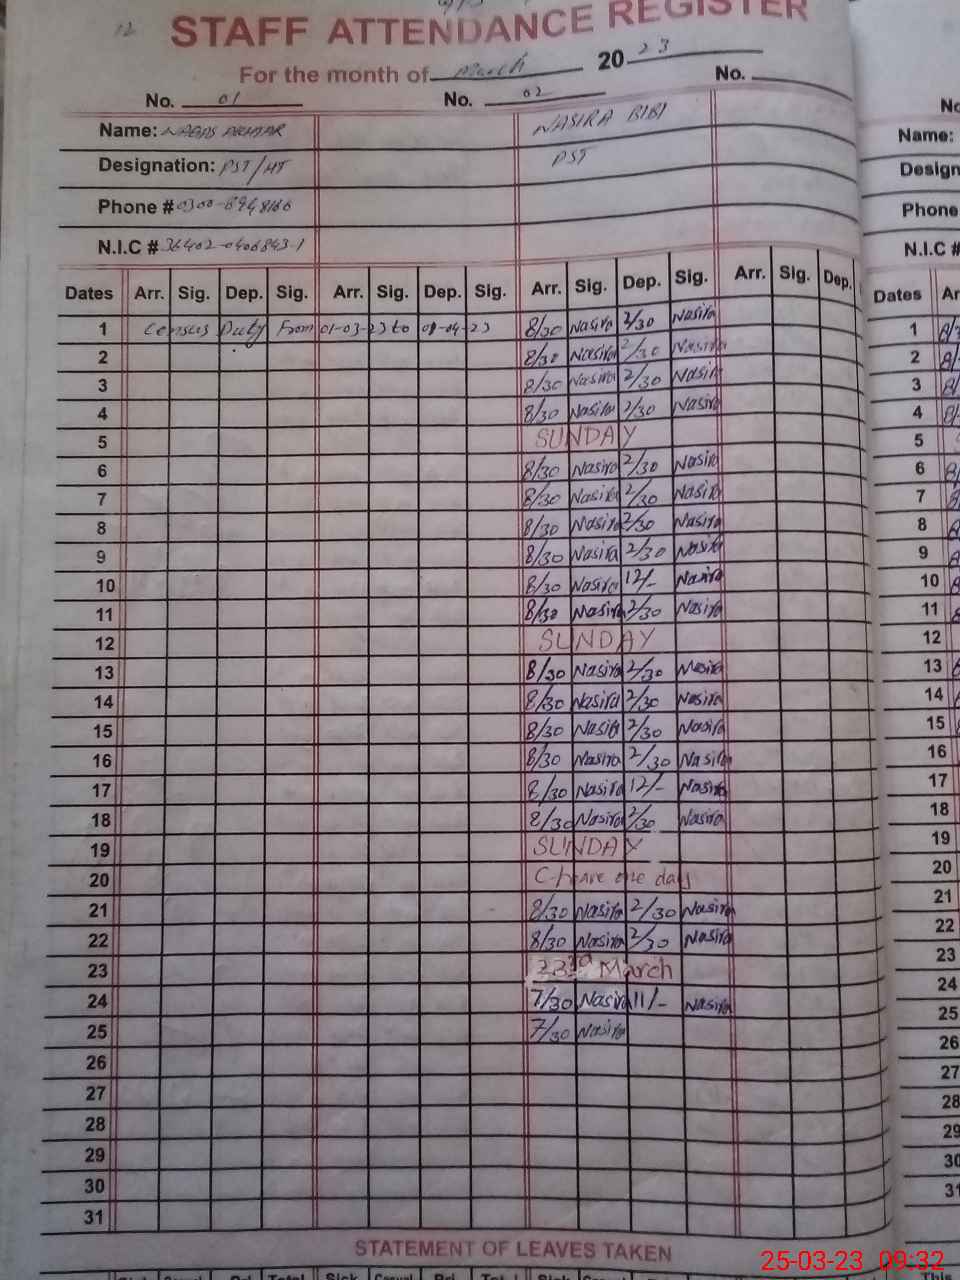 12
STAFF ATTENDANCE REGISTER
For the month of March 2023
No. 01 No. 02 No.
Name: NASIRA BIBI
Designation: PST/HT PST
Phone #
N.I.C # 36402-0406843-1
Dates Arr. Sig. Dep. Sig. Arr. Sig. Dep. Sig. Arr. Sig. Dep. Sig. Arr. Sig. Dep.
1 Census Duty From 01-03-23 to 8/30 Nasira 2/30 Nasira
2 8/30 Nasira 2/30 Nasira
3 8/30 Nasira 2/30 Nasira
4 8/30 Nasira 2/30 Nasira
5 SUNDAY
6 8/30 Nasira 2/30 Nasira
7 8/30 Nasira 2/30 Nasira
8 8/30 Nasira 2/30 Nasira
9 8/30 Nasira 2/30 Nasira
10 8/30 Nasira 12/- Nasira
11 8/30 Nasira 2/30 Nasira
12 SUNDAY
13 8/30 Nasira 2/30 Nasira
14 8/30 Nasira 2/30 Nasira
15 8/30 Nasira 2/30 Nasira
16 8/30 Nasira 2/30 Nasira
17 8/30 Nasira 12/- Nasira
18 8/30 Nasira 2/30 Nasira
19 SUNDAY
20 one day
21 8/30 Nasira 2/30 Nasira
22 8/30 Nasira 2/30 Nasira
23 23rd March
24 7/30 Nasira 11/- Nasira
25 7/30 Nasira
26
27
28
29
30
31
STATEMENT OF LEAVES TAKEN
Name:
Phone
N.I.C #
Dates
1
2
3
4
5
6
7
8
9
10
11
12
13
14
15
16
17
18
19
20
21
22
23
24
25
26
27
28
29
30
31
25-03-23 09:32